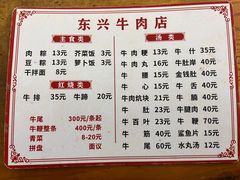 东兴牛肉店
主食类
肉粽 13元 芥菜饭 3元
豆粽 13元 萝卜饭 3元
干拌面 8元
红烧类
牛排 35元 牛蹄 20元
牛尾 300元/条起
牛鞭整条 400元/条
青菜 8-20元
拼盘 面议
汤类
牛肉粳 14元 牛什 35元
牛肉丸 16元 牛肚岸 40元
牛腰 12元 金钱肚 40元
牛心 15元 牛舌 40元
牛肉炕块 15元 牛脑 40元
牛肚 16元 牛腱肉 40元
牛百叶 23元 牛鞭 70元
牛筋 40元 鲨鱼片 15元
牛尾 60元 水丸汤 12元